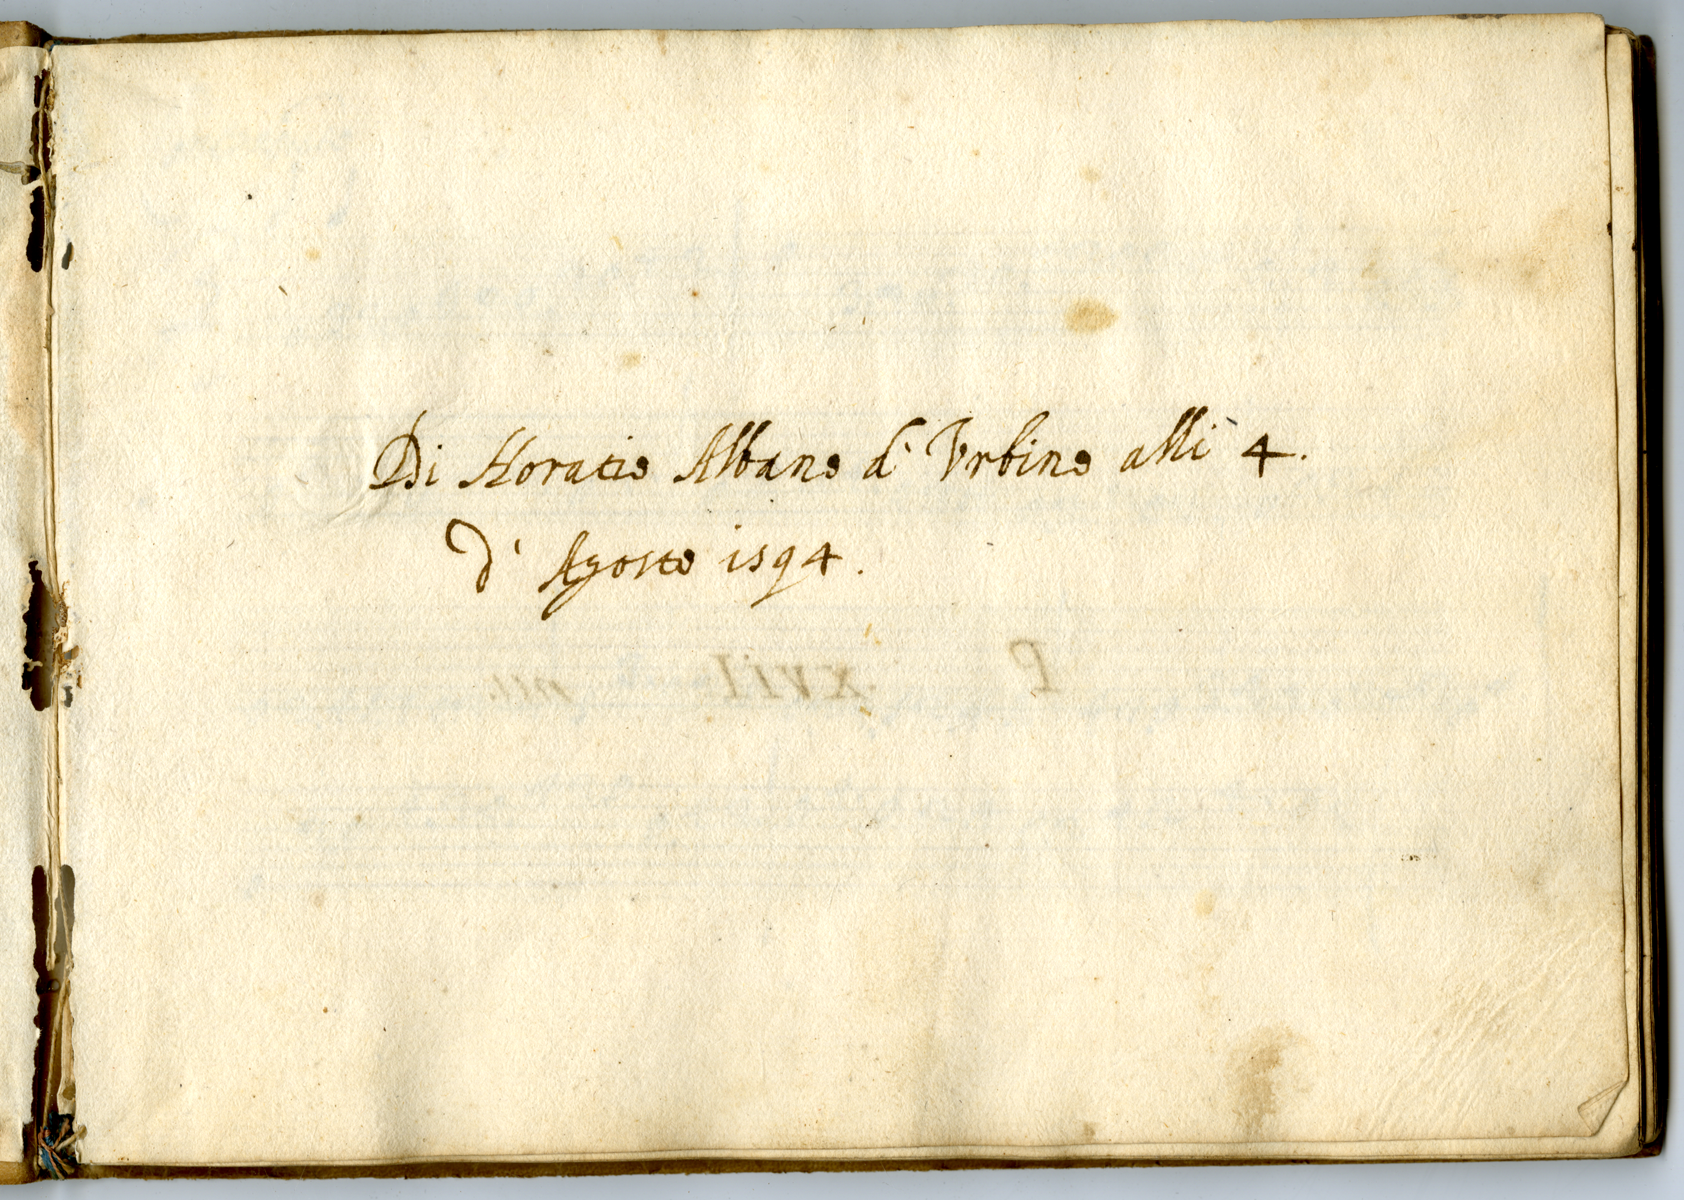 Di Horatio Albano d' Vrbino alli 4.
d' Agosto 1594.
P .XVII.